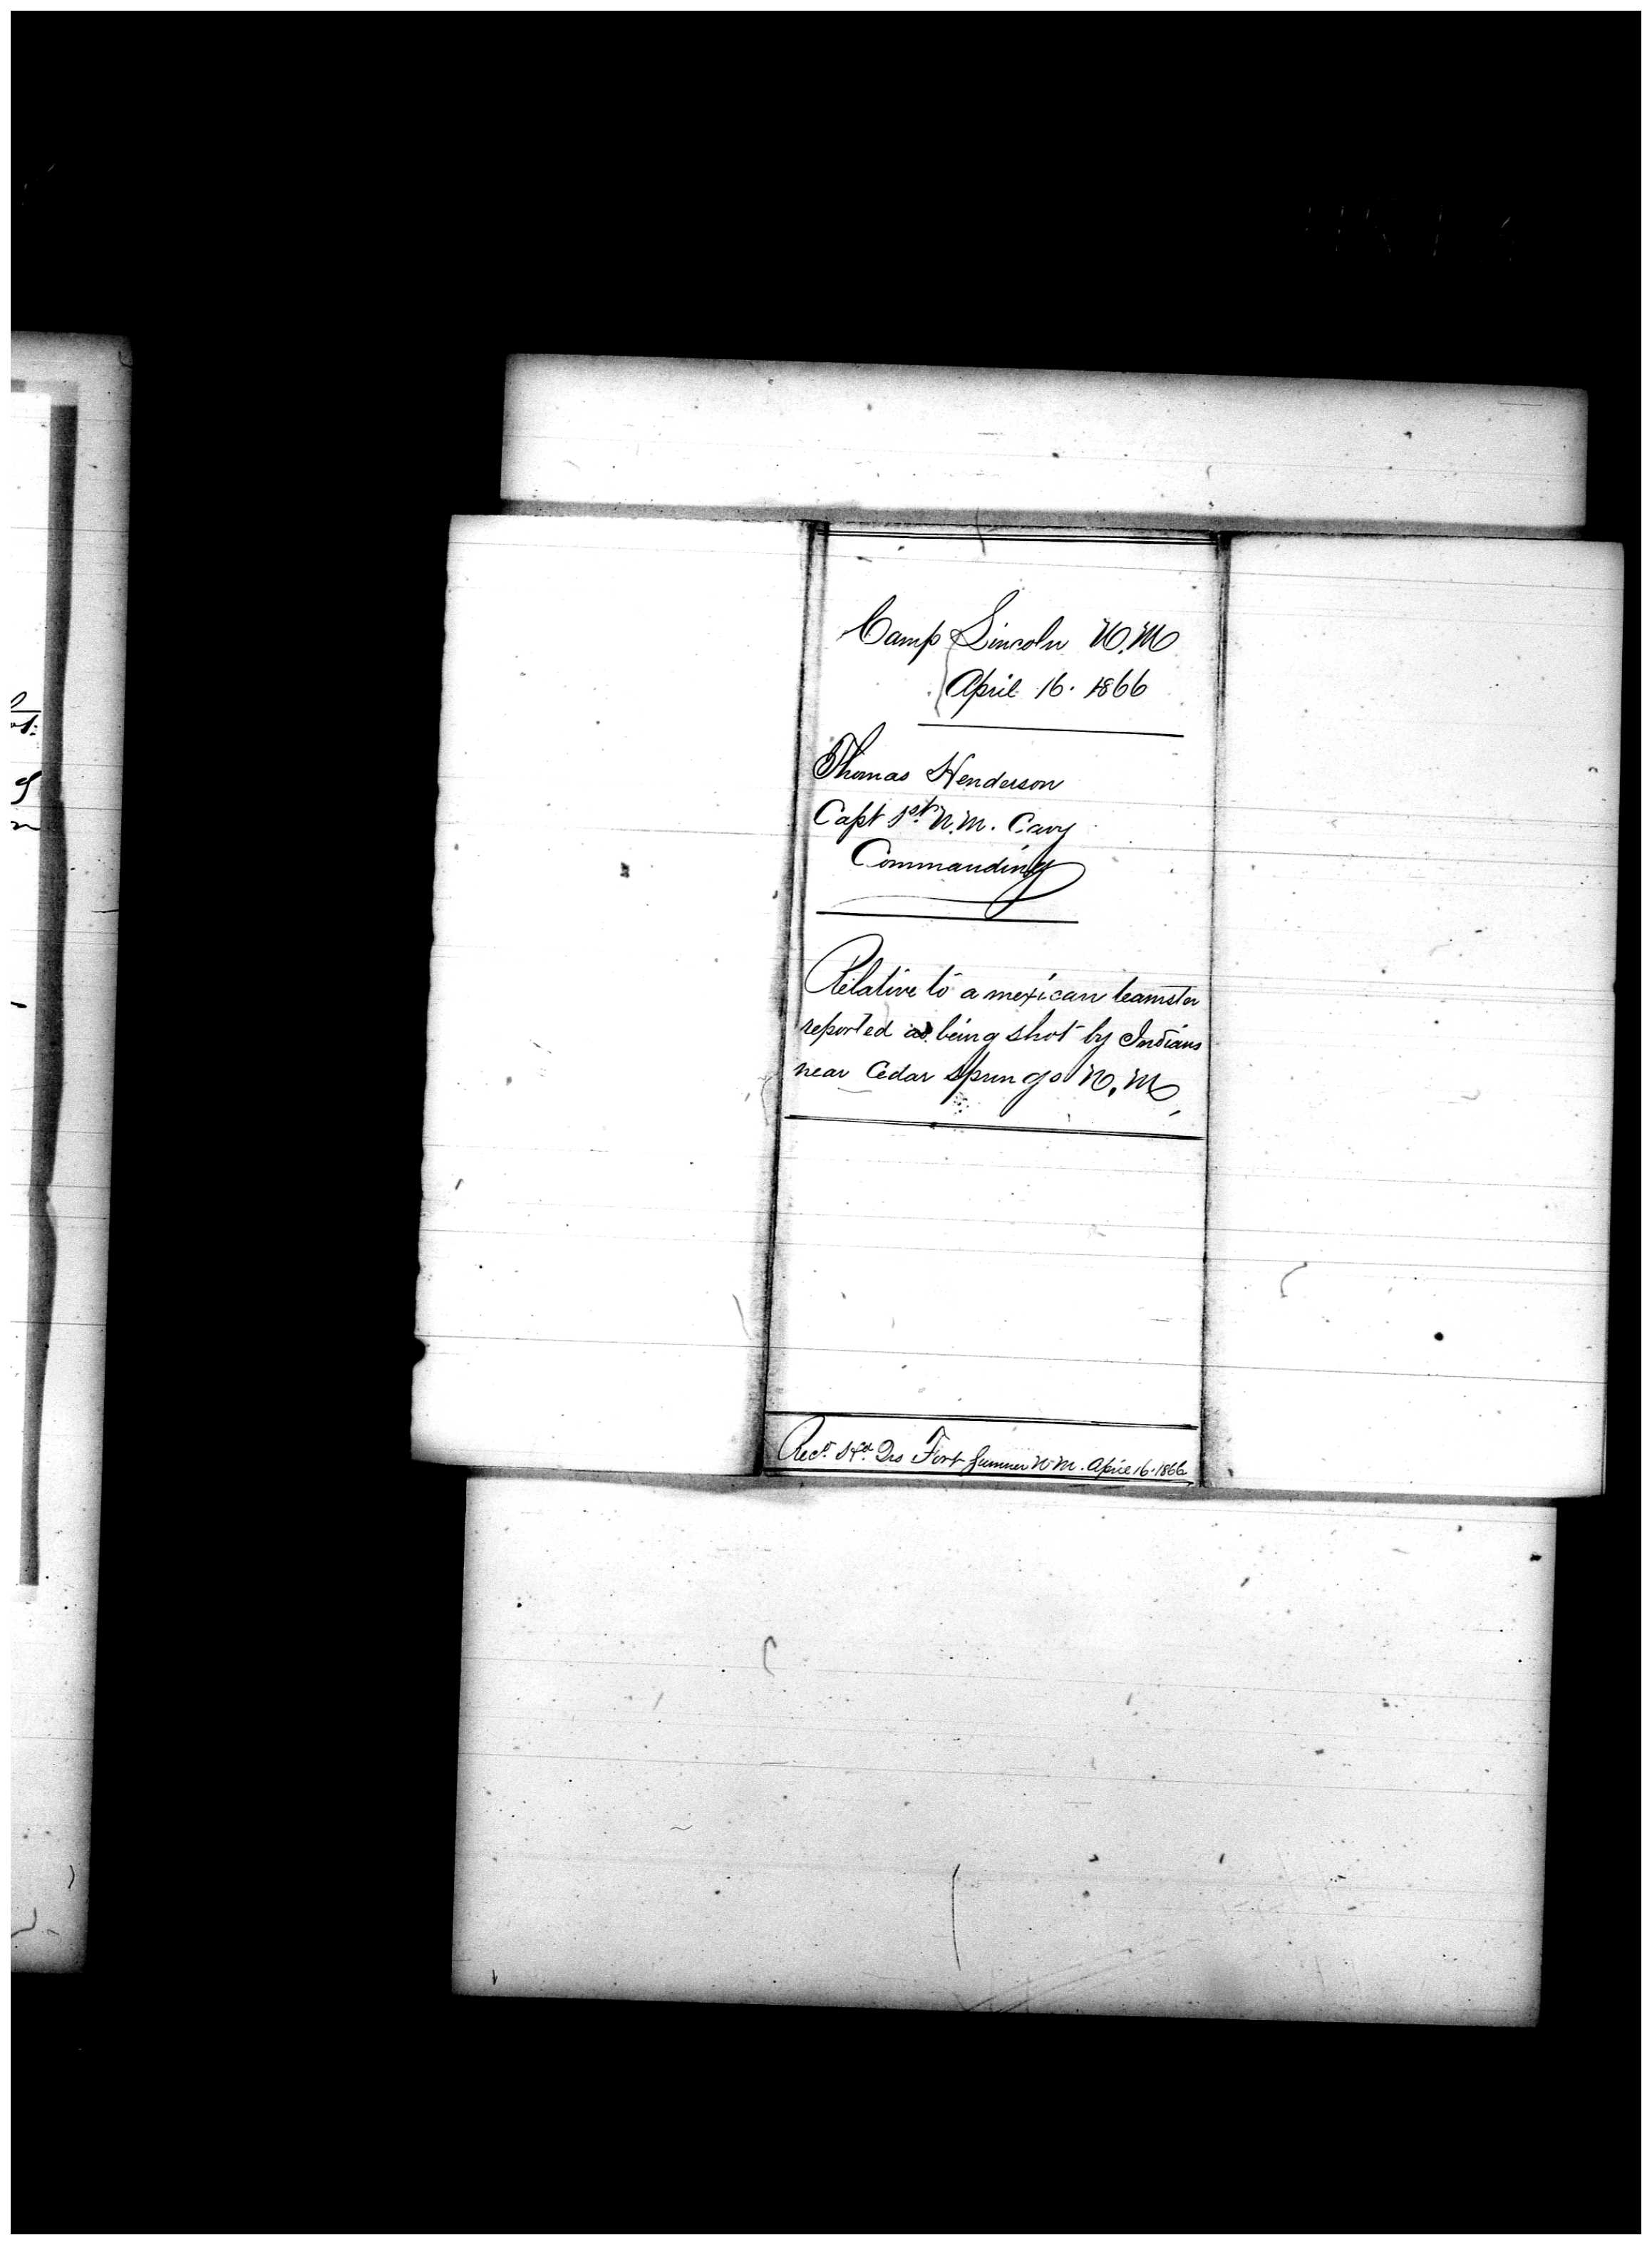 Camp Lincoln N.M
April 16. 1866
Thomas Henderson
Capt 1st N.M. Cavy
Commanding
Relative to a mexican teamster
reported as being shot by Indians
near Cedar Springs N.M
Recd. Hd. Qrs Fort Sumner N.M. April 16. 1866